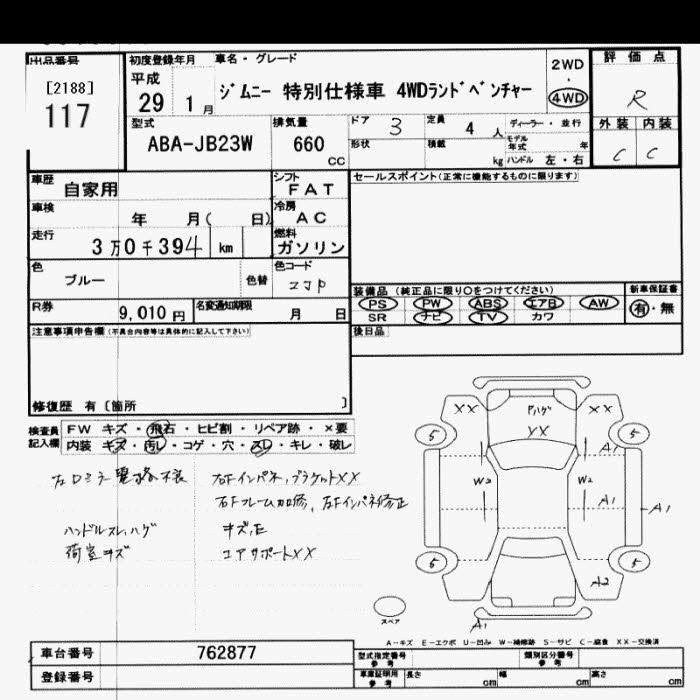 出品番号
[2188]
117
初度登録年月 車名・グレード
平成
29 1月
ジムニー 特別仕様車 4WDランドベンチャー
2WD
・
4WD
評価点
R
外装 内装
C C
型式
ABA-JB23W
排気量
660
CC
ドア 3 定員 4人
形状 積載 kg
ディーラー・並行
モデル年式 年
ハンドル 左・右
車歴 自家用
シフト
FAT
車検 年 月( 日)
冷房
AC
走行
3万0千394 km
燃料
ガソリン
色 ブルー 色替
色コード
ZJP
R券 9,010円 名変通知期限 月 日
セールスポイント(正常に機能するものに限ります)
装備品(純正品に限り○をつけてください)
PS PW ABS エアB AW
SR ナビ TV カワ
新車保証書
有・無
後日品
注意事項申告欄(不具合内容等は具体的に記入して下さい)
修復歴 有〔箇所 〕
検査員記入欄
FW キズ・飛石・ヒビ割・リペア跡・×要
内装 キズ・汚レ・コゲ・穴・スレ・キレ・破レ
右Fインパネ,ブラケットXX
右Fフレーム加修,左Fインパネ修正
ハンドルスレ,ハゲ キズ,E
荷室キズ コアサポートXX
XX Pハゲ XX
XX
5 5
A1
W2 W2
A1 A1
5 5
A2
スペア
A1
A-キズ E-エクボ U-凹み W-補修跡 S-サビ C-腐食 XX-交換済
車台番号 762877
登録番号
型式指定番号 参考 類別区分番号 参考
車庫証明用 参考 長さ cm 幅 cm 高さ cm